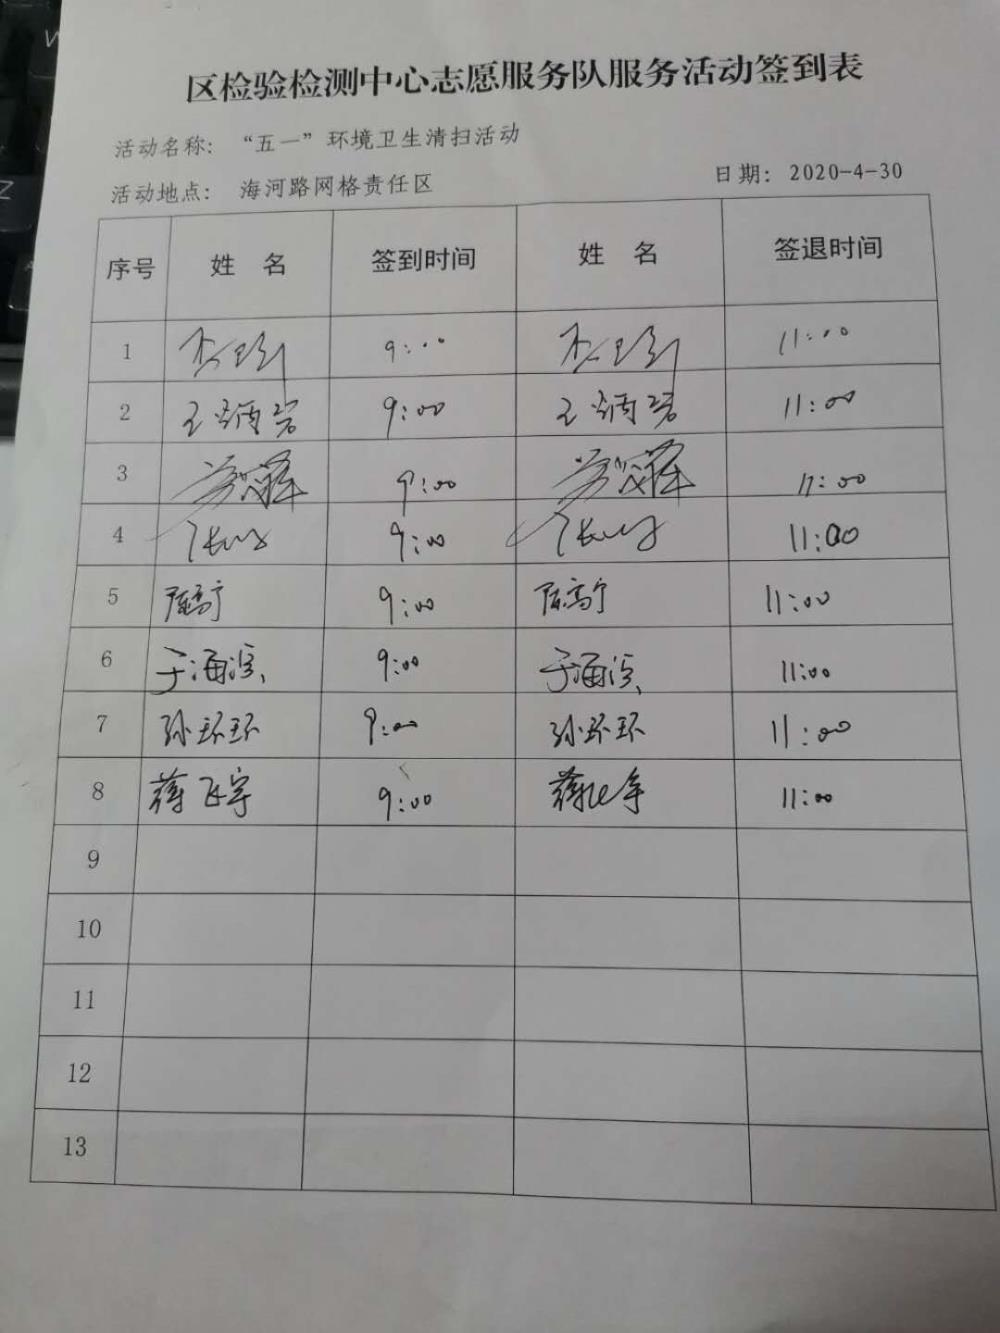 区检验检测中心志愿服务队服务活动签到表
活动名称: “五一”环境卫生清扫活动
活动地点: 海河路网格责任区 日期: 2020-4-30
序号 姓 名 签到时间 姓 名 签退时间
1 9:00 11:00
2 王炳岩 9:00 王炳岩 11:00
3 9:00 11:00
4 9:00 11:00
5 陈高宁 9:00 陈高宁 11:00
6 于海滨 9:00 于海滨 11:00
7 孙环环 9:00 孙环环 11:00
8 蒋飞宇 9:00 蒋飞宇 11:00
9
10
11
12
13